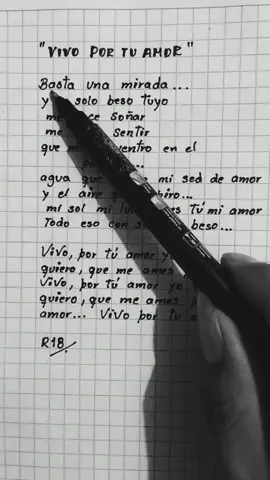 "VIVO POR TU AMOR"
Basta una mirada...
y solo beso tuyo
me soñar
me sentir
que me en el
agua que mi sed de amor
y el aire
mi sol mi tú mi amor
Todo eso con beso...
Vivo, por tú amor yo
quiero, que me ames
Vivo, por tú amor yo
quiero, que me ames
amor... Vivo por tu
R18